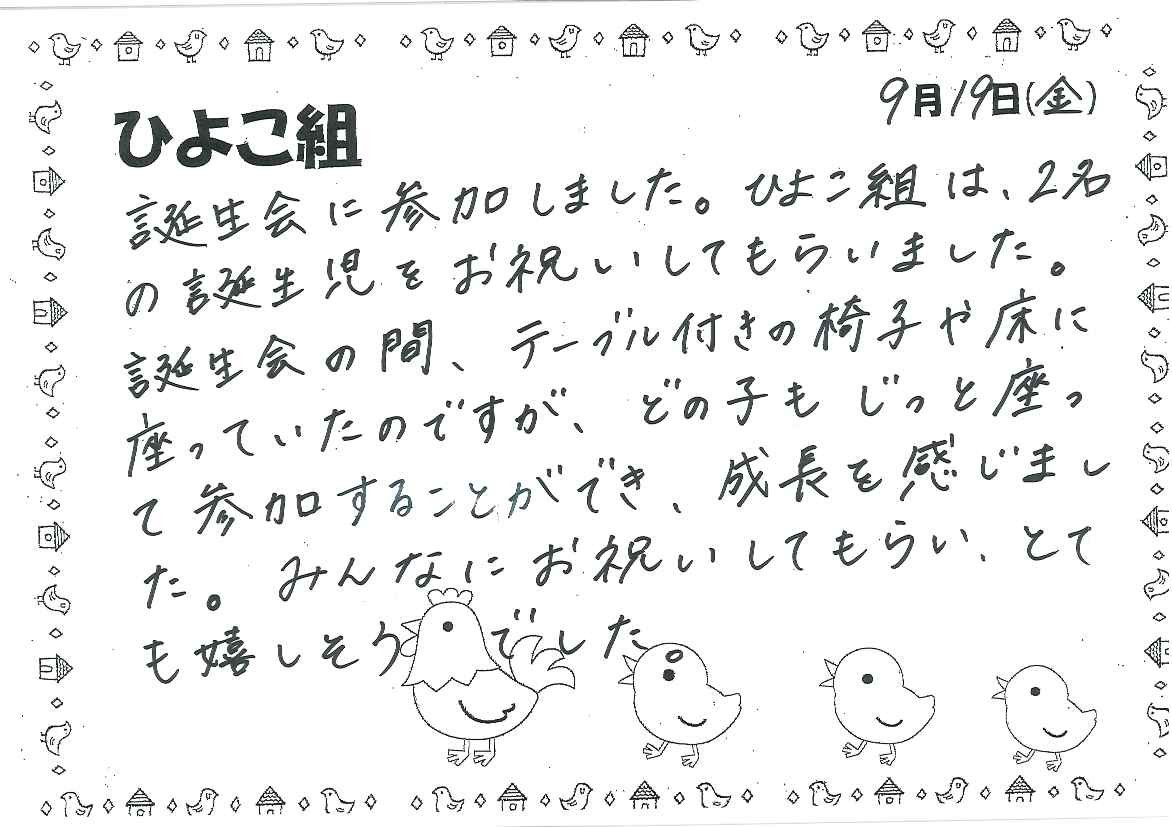 9月19日(金)
ひよこ組
誕生会に参加しました。ひよこ組は、2名
の誕生児をお祝いしてもらいました。
誕生会の間、テーブル付きの椅子や床に
座っていたのですが、どの子もじっと座っ
て参加することができ、成長を感じまし
た。みんなにお祝いしてもらい、とて
も嬉しそうでした。